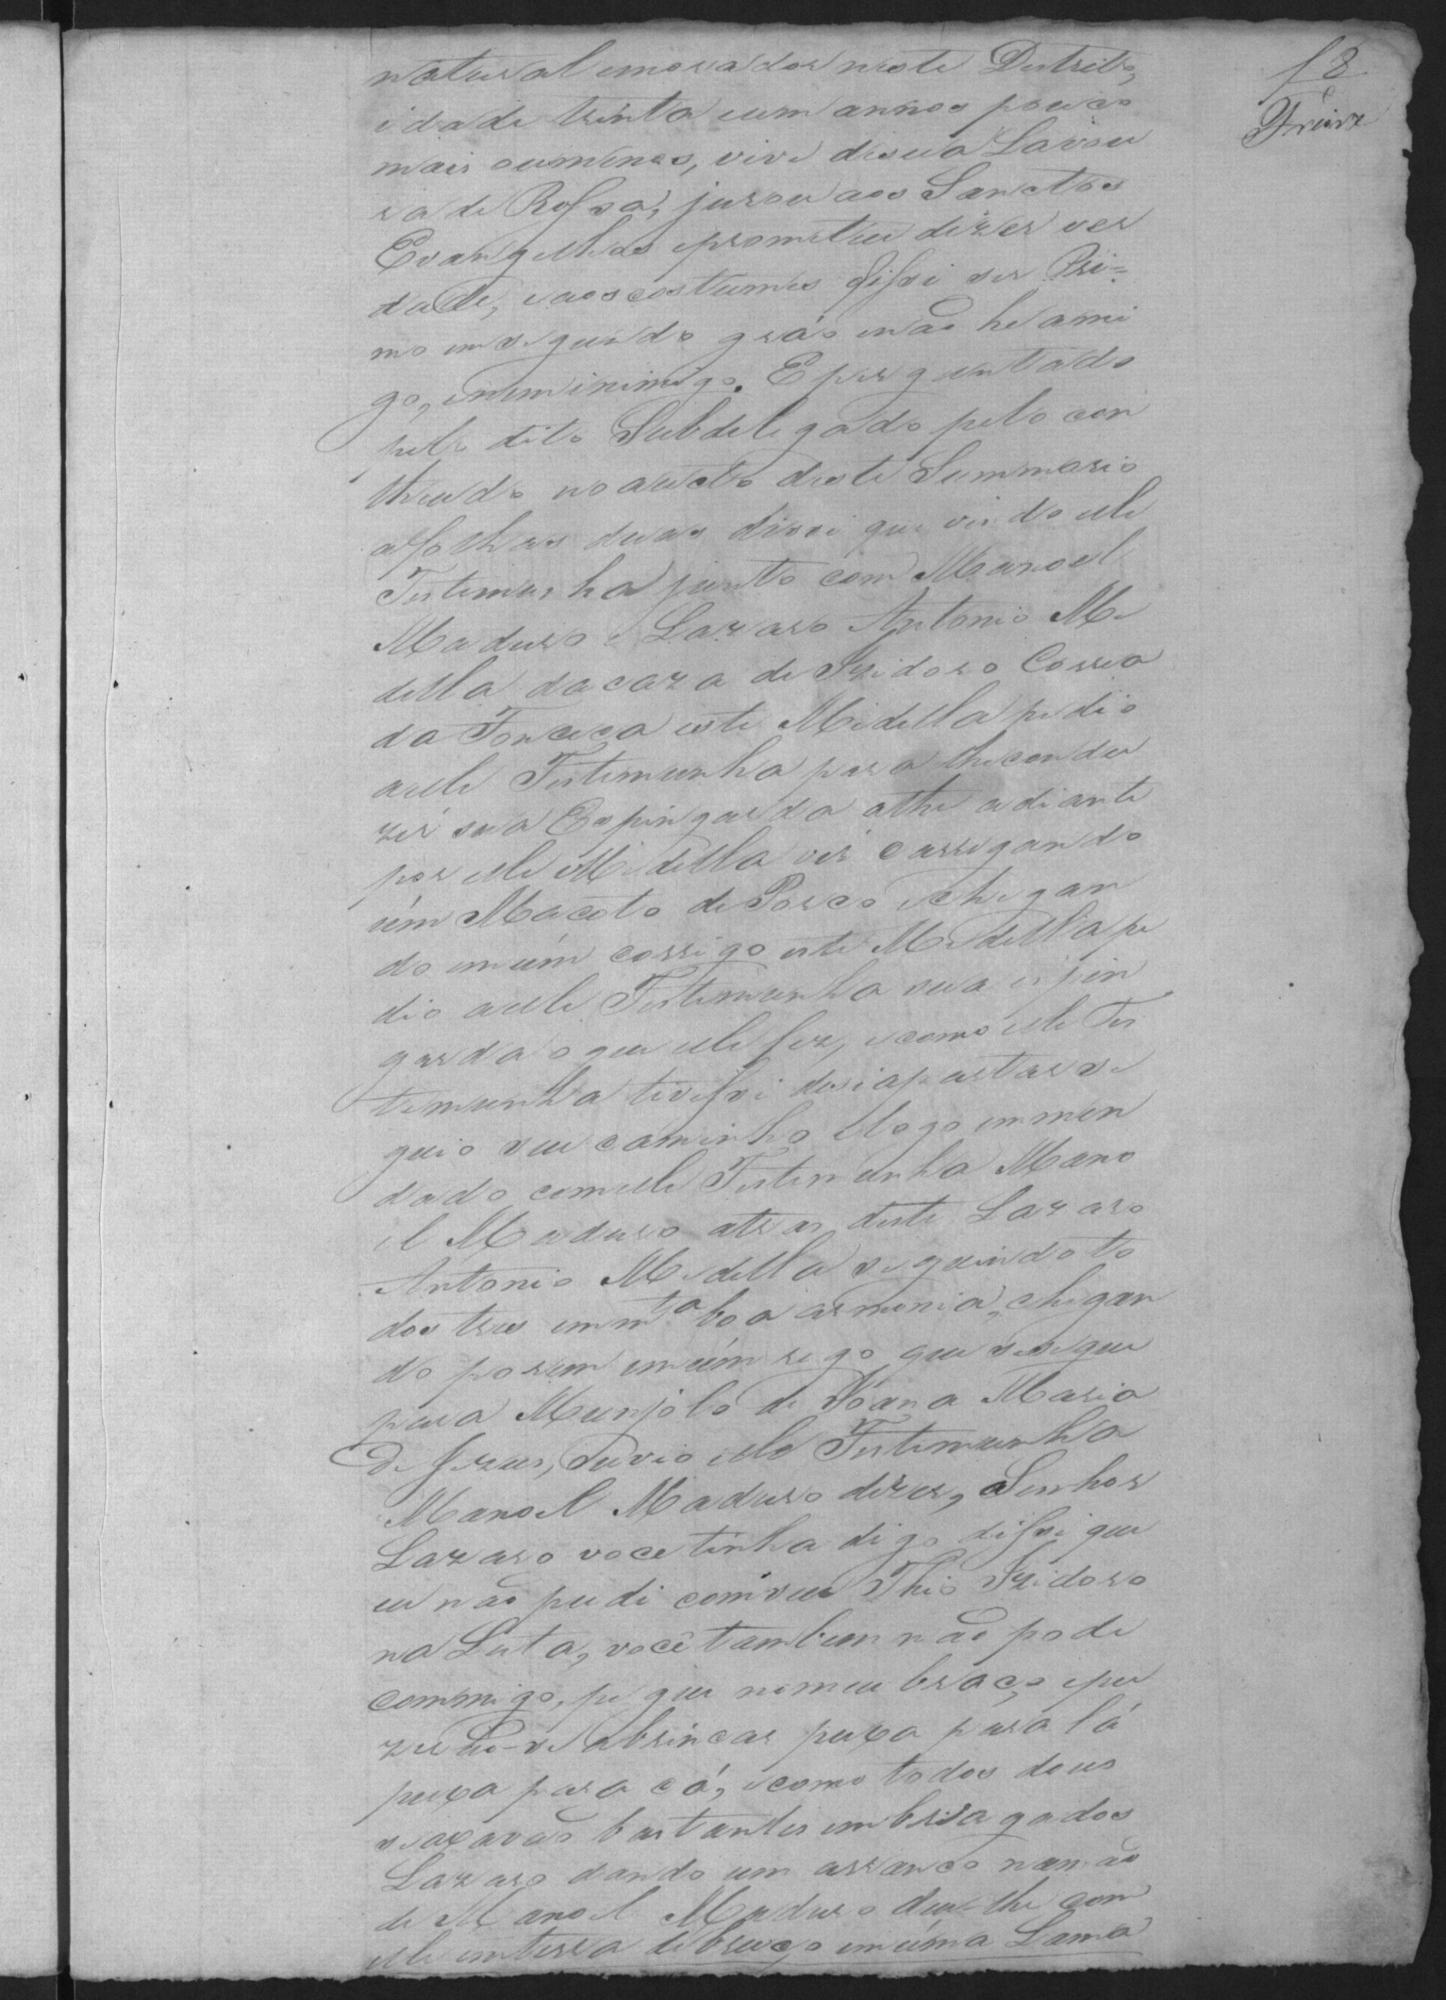 18
Freire
natural emorador neste Destrito,
idade trinta eum annos pouco
mais oumenos, vive desua Lavou
ra de Rossa, jurou aos Sanctos
Evangelhos eprometeu dizer ver
dade, eaoscostumes disse ser Pri=
mo emsegundo gráo enão he ami
go, enem inimigo. E perguntado
pelo dito Subdelegado pelo con
theudo noaucto deste Summario
afolhas duas disse que vindo elle
Testemunha junto com Manoel
Maduro e Lazaro Antonio Me
della dacaza de Izidoro Correa
da Fonceca este Medella pedio
aelle Testemunha para lhecondu
zir sua Espingarda athe adiante
por elle Medella vir carregando
úm Macoto de Porco echegan
do emúm corrigo este Medella pe
dio aelle Testemunha sua espin
garda oque elle fez, ecomo elle Tes
temunha tivesse deseapartar se
guio seu caminho elogo emmen
dado comelle Testemunha Mano
el Maduro atras deste Lazaro
Antonio Medella seguindo to
dos tres emm.ta boa armonia, chegan
do porem emúm rego que sesegue
para Munjolo de Joana Maria
de Jezus, ouvio elle Testemunha
Manoel Maduro dizer, Senhor
Lazaro voce tinha digo disse que
eu não pude comseu Thio Izidoro
na Luta, você tambem não pode
commigo, pegue nomeu braço, epu
zerão-se abrincar puxa para lá
puxa para cá, ecomo todos dous
seaxavão bastantes embriagados
Lazaro dando um arranco namão
de Manoel Maduro deu-lhe com
elle emterra debruço emúma Lama